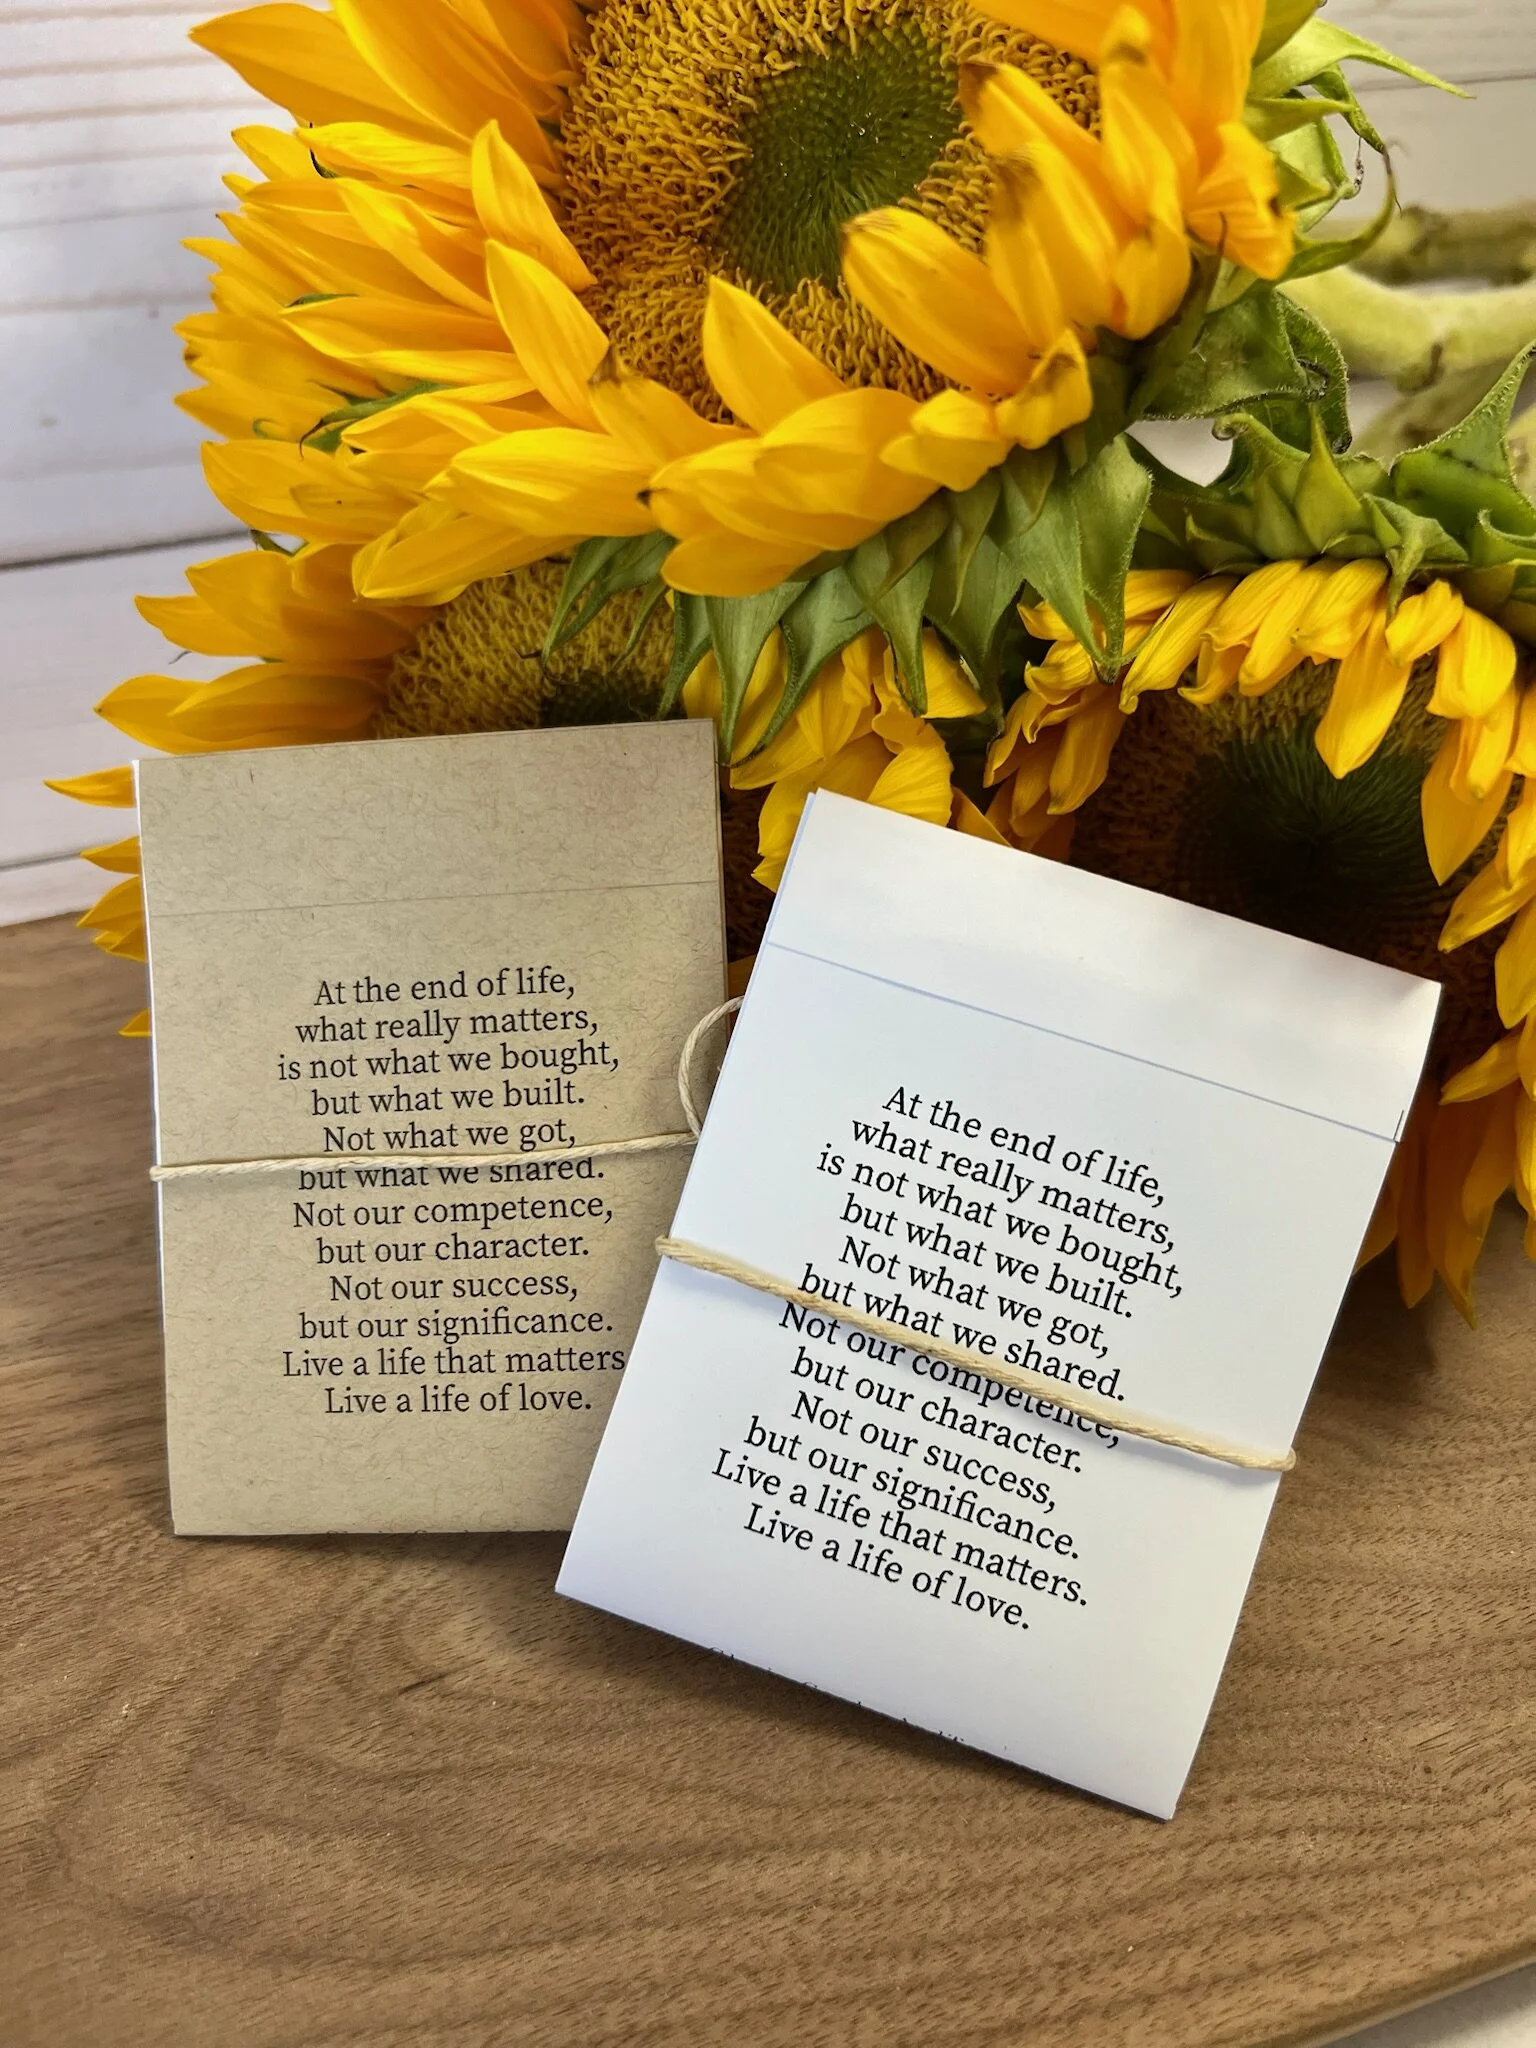 At the end of life,
what really matters,
is not what we bought,
but what we built.
Not what we got,
but what we shared.
Not our competence,
but our character.
Not our success,
but our significance.
Live a life that matters
Live a life of love.
At the end of life,
what really matters,
is not what we bought,
but what we built.
Not what we got,
but what we shared.
Not our competence,
but our character.
Not our success,
but our significance.
Live a life that matters.
Live a life of love.